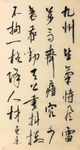 九州生氣恃風雷
萬馬齊瘖究可
哀我勸天公重抖擻
不拘一格降人材